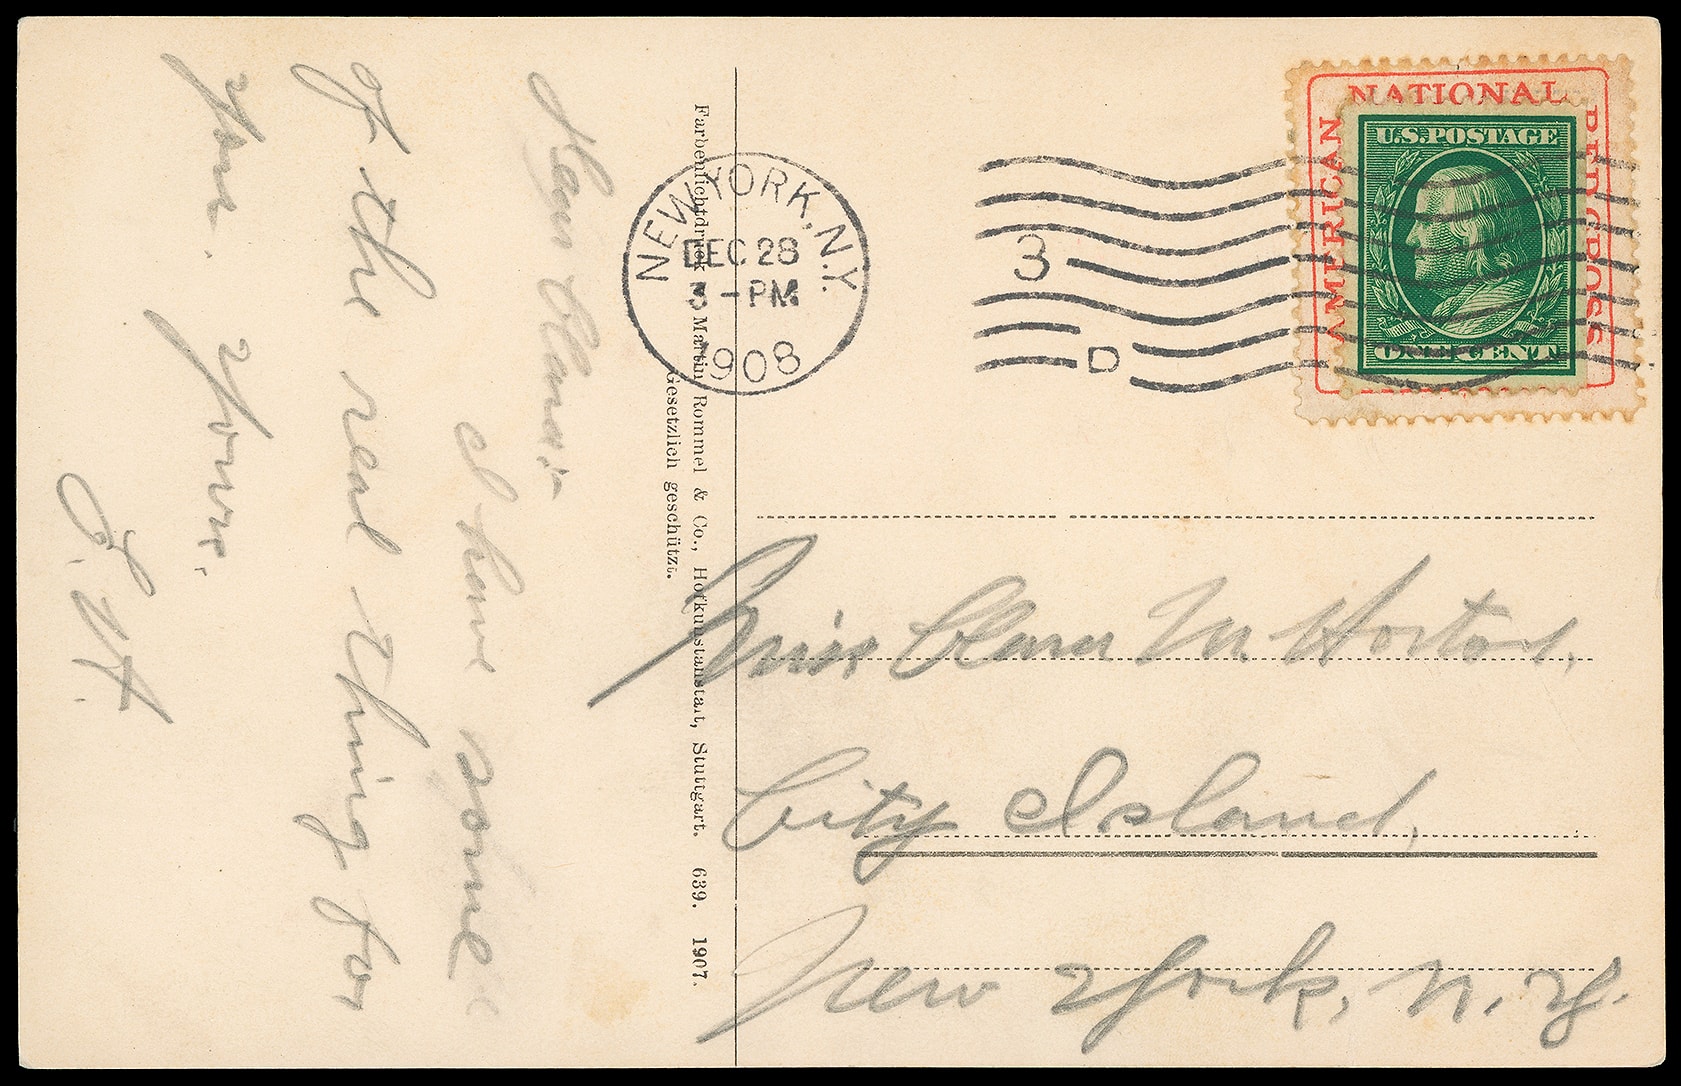 Dear Clara:-
I have some
of the real thing for
you. Yours.
J. H.
Farbenlichtdruck v. Martin Rommel & Co., Hofkunstanstalt, Stuttgart. 639. 1907.
Gesetzlich geschützt.
NEW YORK, N.Y.
DEC 28
3-PM
1908
3
D
NATIONAL
AMERICAN
RED CROSS
U.S. POSTAGE
ONE CENT
Miss Clara M. Horton.
City Island,
New York, N.Y.